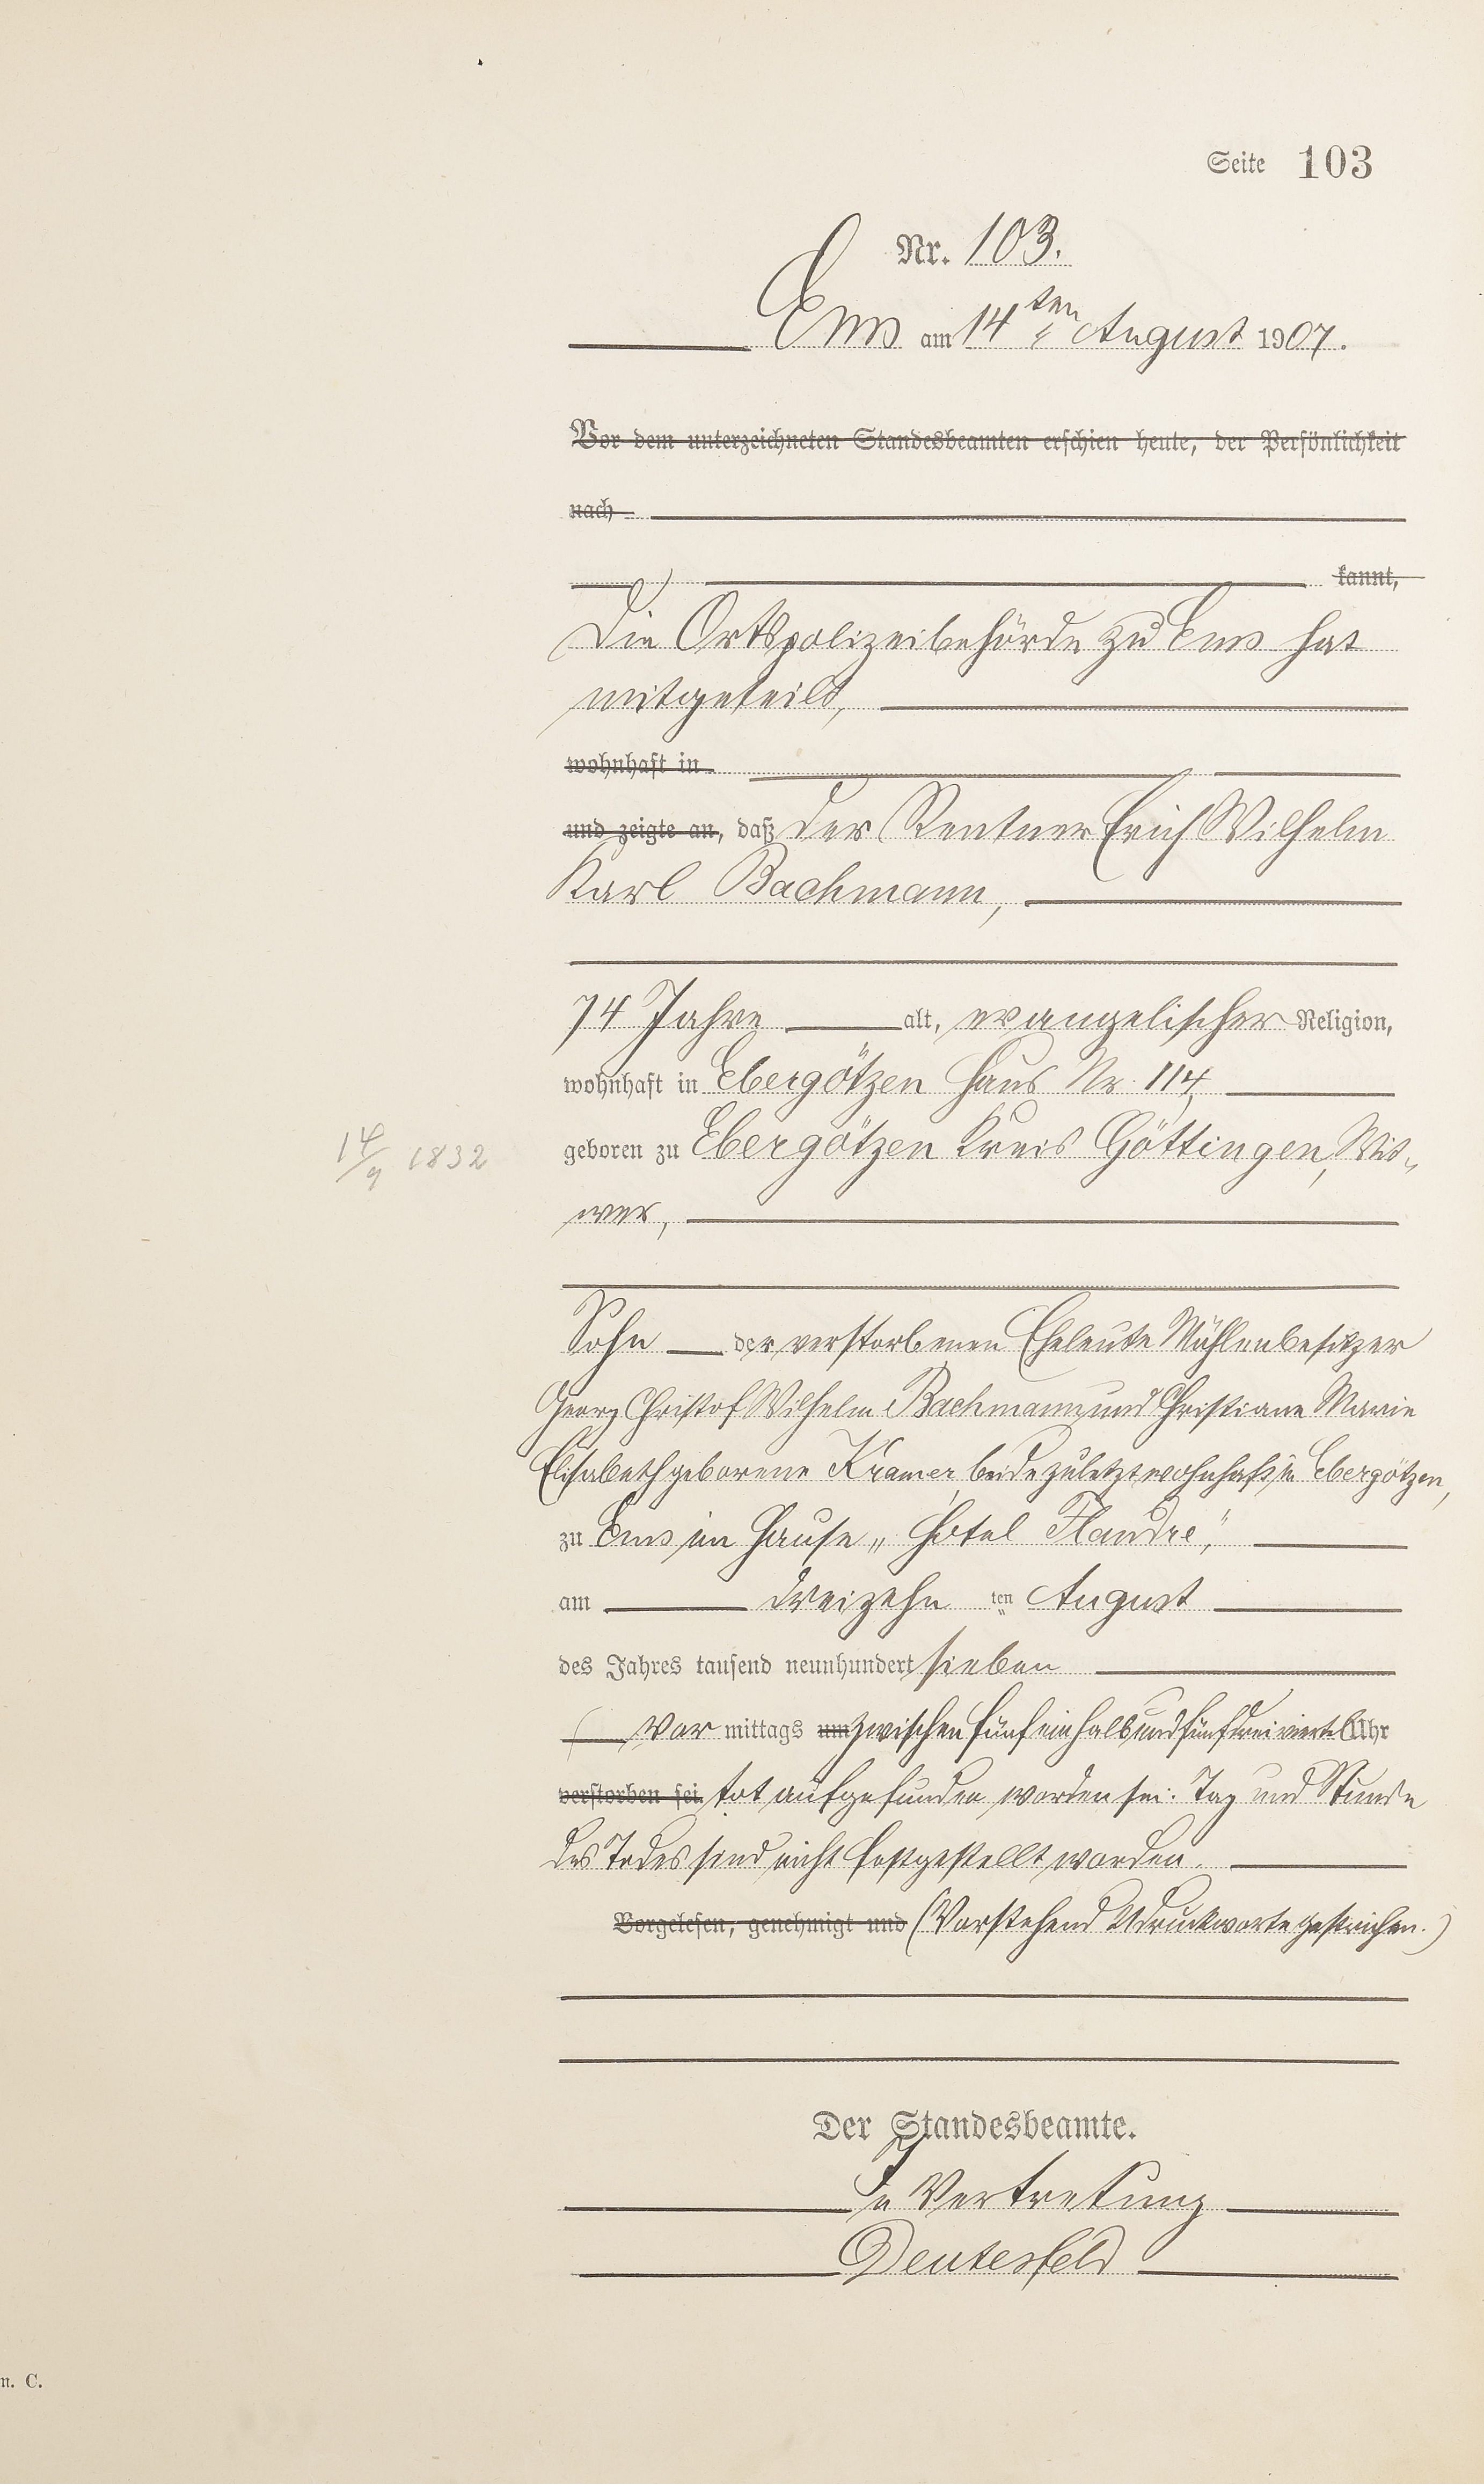 Seite 103
Nr. 103.
Ems am 14ten August 1907.
Vor dem unterzeichneten Standesbeamten erschien heute, der Persönlichkeit
nach
kannt,
Die Ortspolizeibehörde zu Ems hat
mitgeteilt,
wohnhaft in
und zeigte an, daß der Rentner Erich Wilhelm
Karl Bachmann,
74 Jahre alt, evangelischer Religion,
wohnhaft in Ebergötzen Haus Nr. 114,
14/9 1832
geboren zu Ebergötzen Kreis Göttingen, Wit-
wer,
Sohn der verstorbenen Eheleute Mühlenbesitzer
Georg Christof Wilhelm Bachmann und Christiane Marie
Elisabeth geborene Kramer, beide zuletzt wohnhaft in Ebergötzen,
zu Ems im Hause „Hotel Flandre",
am dreizehnten August
des Jahres tausend neunhundert sieben
Vor mittags um zwischen fünfeinhalb und fünfdreiviertel Uhr
verstorben sei tot aufgefunden worden sei. Tag und Stunde
des Todes sind nicht festgestellt worden.
Vorgelesen, genehmigt und (Vorstehend Druckworte gestrichen.)
Der Standesbeamte.
In Vertretung
Deutesfeld
n. C.